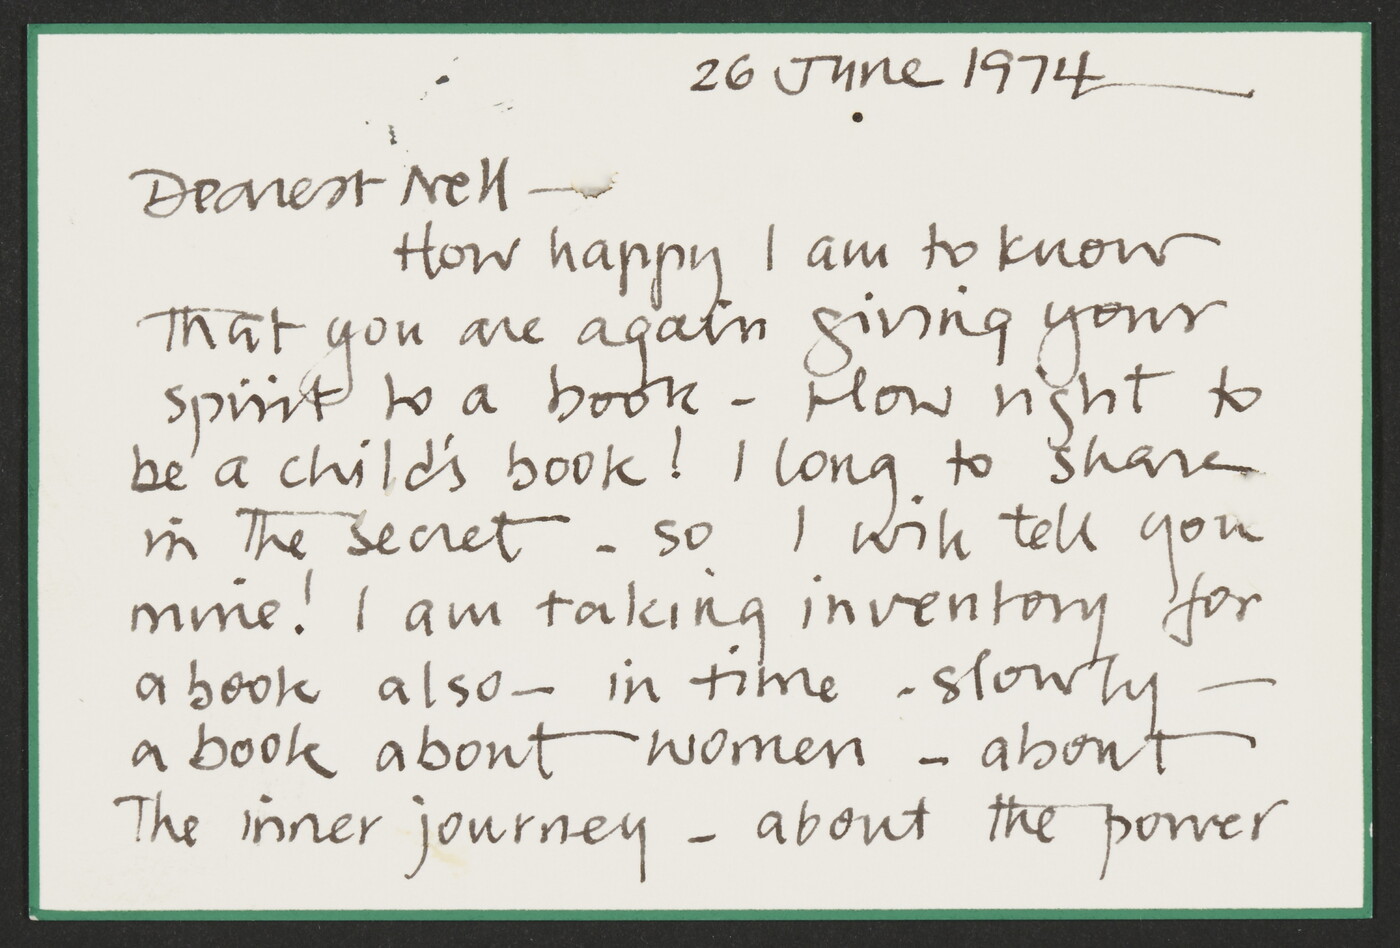 26 June 1974
Dearest Nell —
How happy I am to know
That you are again giving your
spirit to a book - How right to
be a child's book! I long to share
in The secret - so I will tell you
mine! I am taking inventory for
a book also - in time - slowly —
a book about women - about
The inner journey - about the power